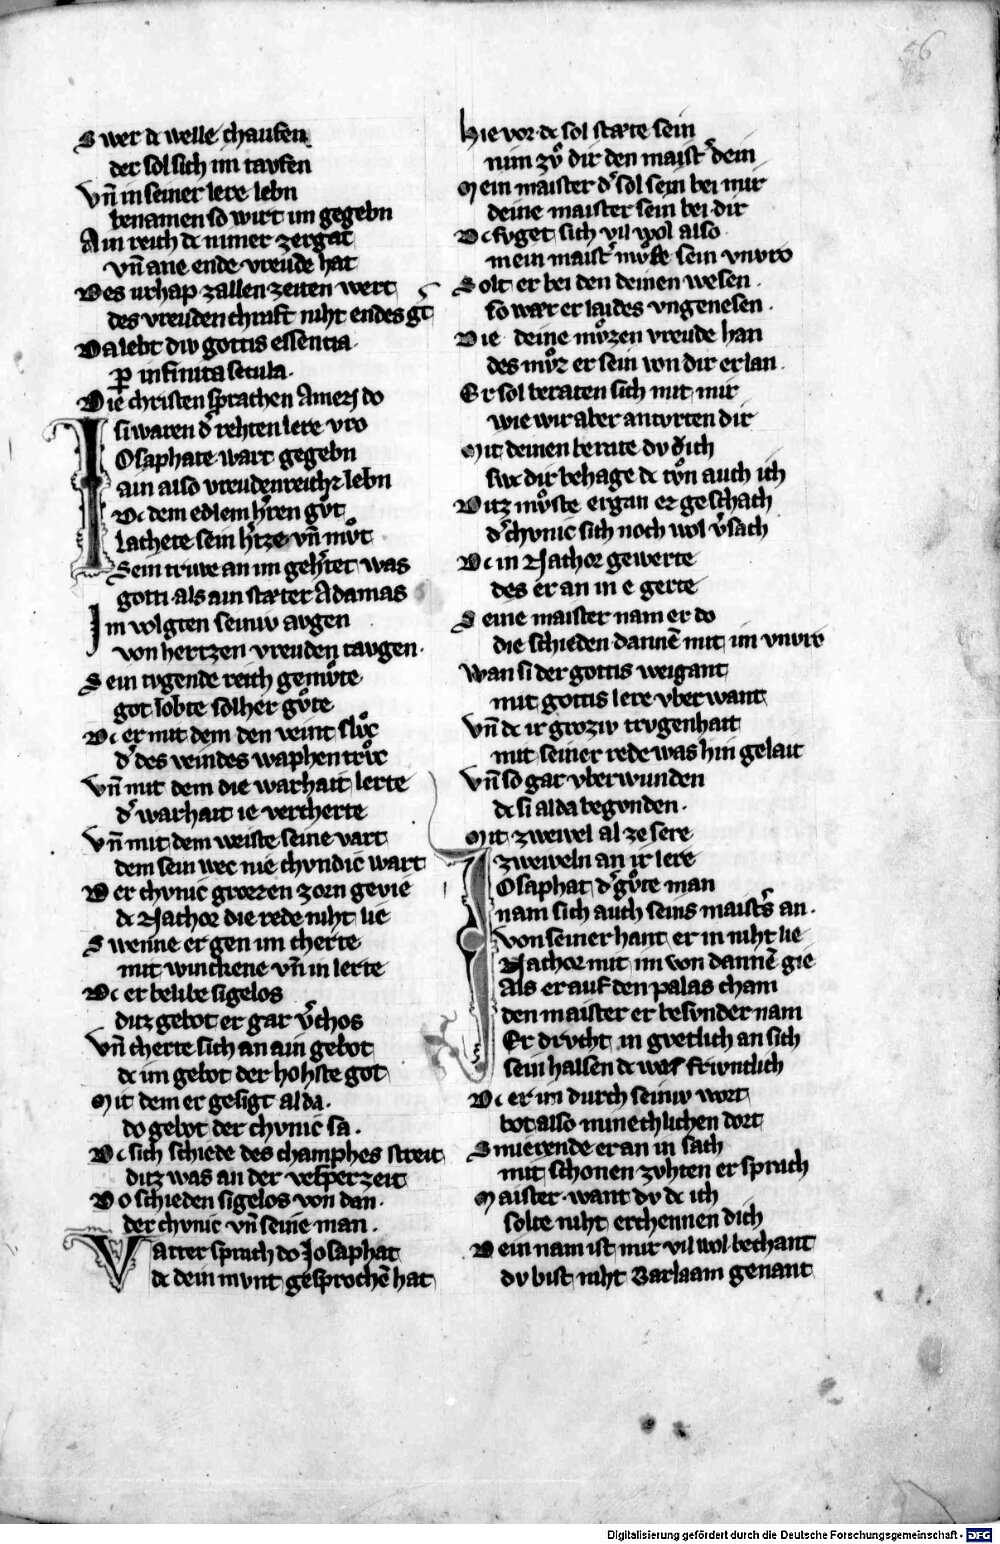 56
Swer dc welle chaufen
der sol sich im taufen
Vn̄ in seiner lere lebn
benamen so wirt im gegebn
Ain reich dc nimer zergat
vn̄ ane ende vreude hat
Des urhap zallen zeiten wert
des vreuden chraft niht endes gt
Da lebt div gottis essentia
ꝑ infinita secula.
Die christen sprachen Amen do
si waren dˀ rehten lere vro
Iosaphate wart gegebn
ain also vreudenreichz lebn
Dc dem edlem hˀren gvt
Lachete sein hˀtze vn̄ mvͦt
Sein truwe an im gehˀtet was
gotti als ain stæter Adamas
Im volgten seiniv avgen
von hertzen vreuden tavgen.
Sein tvgende reich gemvͦte
got lobte solher gvͦte
Dc er mit dem den veint slvͦc
dˀ des veindes waphen trvͦc
Vn̄ mit dem die warhait lerte
dˀ warhait ie vercherte
Vn̄ mit dem weiste seine vart
dem sein wec nie chvndic wart
Der chvnic groezen zorn gevie
dc Nachor die rede niht lie
Swenne er gen im cherte
mit winchene vn̄ in lerte
Dc er belibe sigelos
ditz gebot er gar vˀchos
Vn̄ cherte sich an ain gebot
dc im gebot der hohste got
Mit dem er gesigt al da.
do gebot der chvnic sa.
Dc sich schiede des champhes streit
ditz was an der vesper zeit
Do schieden sigelos von dan.
der chvnic vn̄ seine man.
Vatter sprach do Josaphat
dc dein mvnt gesprochē hat
Hie vor dc sol stæte sein
nim zvͦ dir den maistˀ dein
Mein maister dˀ sol sein bei mir
deine maister sein bei dir
Dc fvget sich vil wol also
mein maistˀ mvͦste sein vnvro
Solt er bei den deinen wesen.
so wær er laides vngenesen.
Die deine mvͦzen vreude han
des mvͦz er sein von dir erlan.
Er sol beraten sich mit mir
wie wir aber antvrten dir
Mit deinen berate dv dich
swc dir behage dc tvͦn auch ich
Ditz mvͦste ergan er geschach
dˀ chvnic sich noch wol vˀsach
Dc in Nachor gewerte
des er an in e gerte
Seine maister nam er do
die schieden dannē mit im vnvro
Wan si der gottis weigant
mit gottis lere vber want
Vn̄ dc ir groziv trvgenhait
mit seiner rede was hin gelait
Vn̄ so gar vberwunden
dc si alda begvnden.
Mit zweivel al ze sere
zweiveln an ir lere
Josaphat dˀ gvͦte man
nam sich auch seins maistˀs an.
von seiner hant er in niht lie
Nachor mit im von dannē gie
Als er auf den palas cham
den maister er besvnder nam
Er drvcht in gvetlich an sich
sein halsen dc was frivntlich
Dc er im durch seiniv wort
bot also minechlichen dort
Smierende er an in sach
mit schonen zvhten er sprach
Maister want dv dc ich
solte niht erchennen dich
Dein nam ist mir vil wol bechant
dv bist niht Barlaam genant
Digitalisierung gefördert durch die Deutsche Forschungsgemeinschaft - DFG